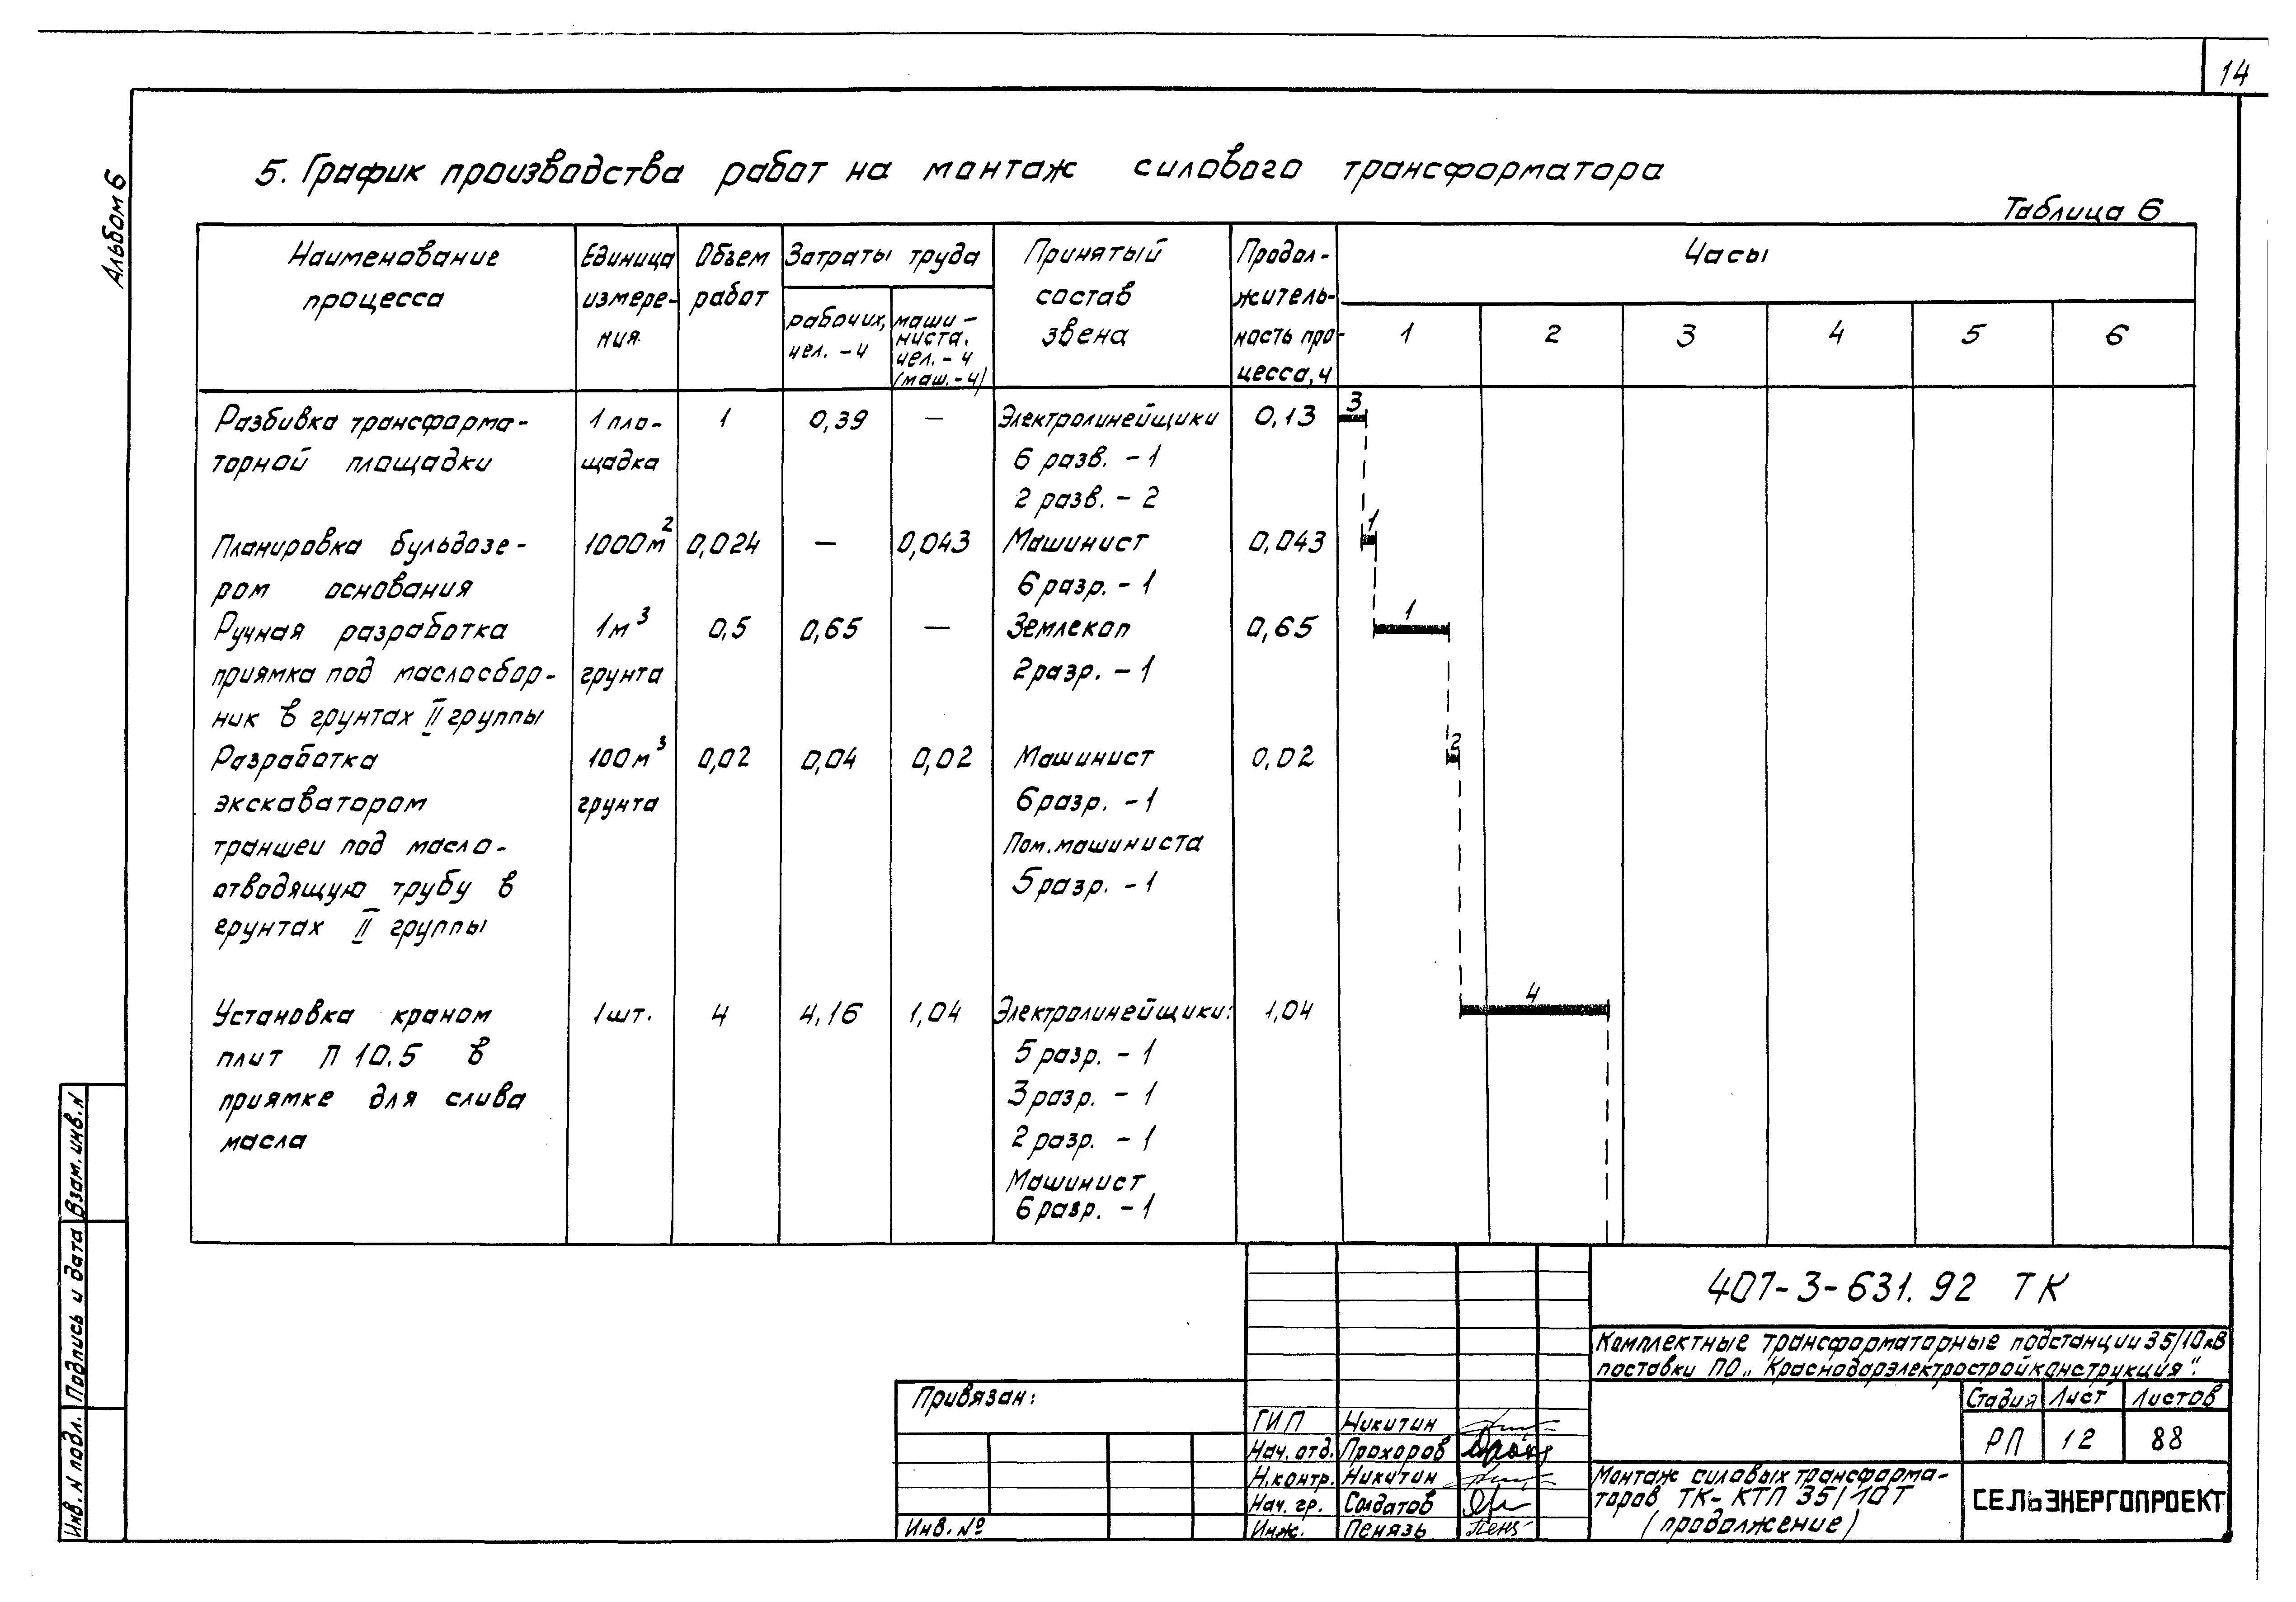 14
Альбом 6
5. График производства работ на монтаж силового трансформатора
Таблица 6
Наименование процесса
Единица измере- ния.
Объем работ
Затраты труда
рабочих, чел. - ч
маши- ниста, чел. - ч (маш. - ч)
Принятый состав звена
Продол- житель- ность про- цесса, ч
Часы
1 2 3 4 5 6
Разбивка трансформа- 1 пло- 1 0,39 — Электролинейщики 0,13 3
торной площадки щадка 6 разв. - 1
2 разв. - 2
Планировка бульдозе- 1000м² 0,024 — 0,043 Машинист 0,043 1
ром основания 6 разр. - 1
Ручная разработка 1м³ 0,5 0,65 — Землекоп 0,65 1
приямка под маслосбор- грунта 2 разр. - 1
ник в грунтах II группы
Разработка 100м³ 0,02 0,04 0,02 Машинист 0,02 2
экскаватором грунта 6 разр. - 1
траншеи под масло- Пом. машиниста
отводящую трубу в 5 разр. - 1
грунтах II группы
Установка краном 1 шт. 4 4,16 1,04 Электролинейщики: 1,04 4
плит П 10.5 в 5 разр. - 1
приямке для слива 3 разр. - 1
масла 2 разр. - 1
Машинист
6 разр. - 1
Взам. инв. N
Подпись и дата
Инв. N подл.
Привязан:
Инв. №
ГИП Никитин
Нач. отд. Прохоров
Н. контр. Никитин
Нач. гр. Солдатов
Инж. Пенязь
407-3-631.92 ТК
Комплектные трансформаторные подстанции 35/10кВ
поставки ПО „Краснодарэлектростройконструкция".
Стадия Лист Листов
РП 12 88
Монтаж силовых трансформа-
торов ТК- КТП 35/10Т
(продолжение)
СЕЛЬЭНЕРГОПРОЕКТ